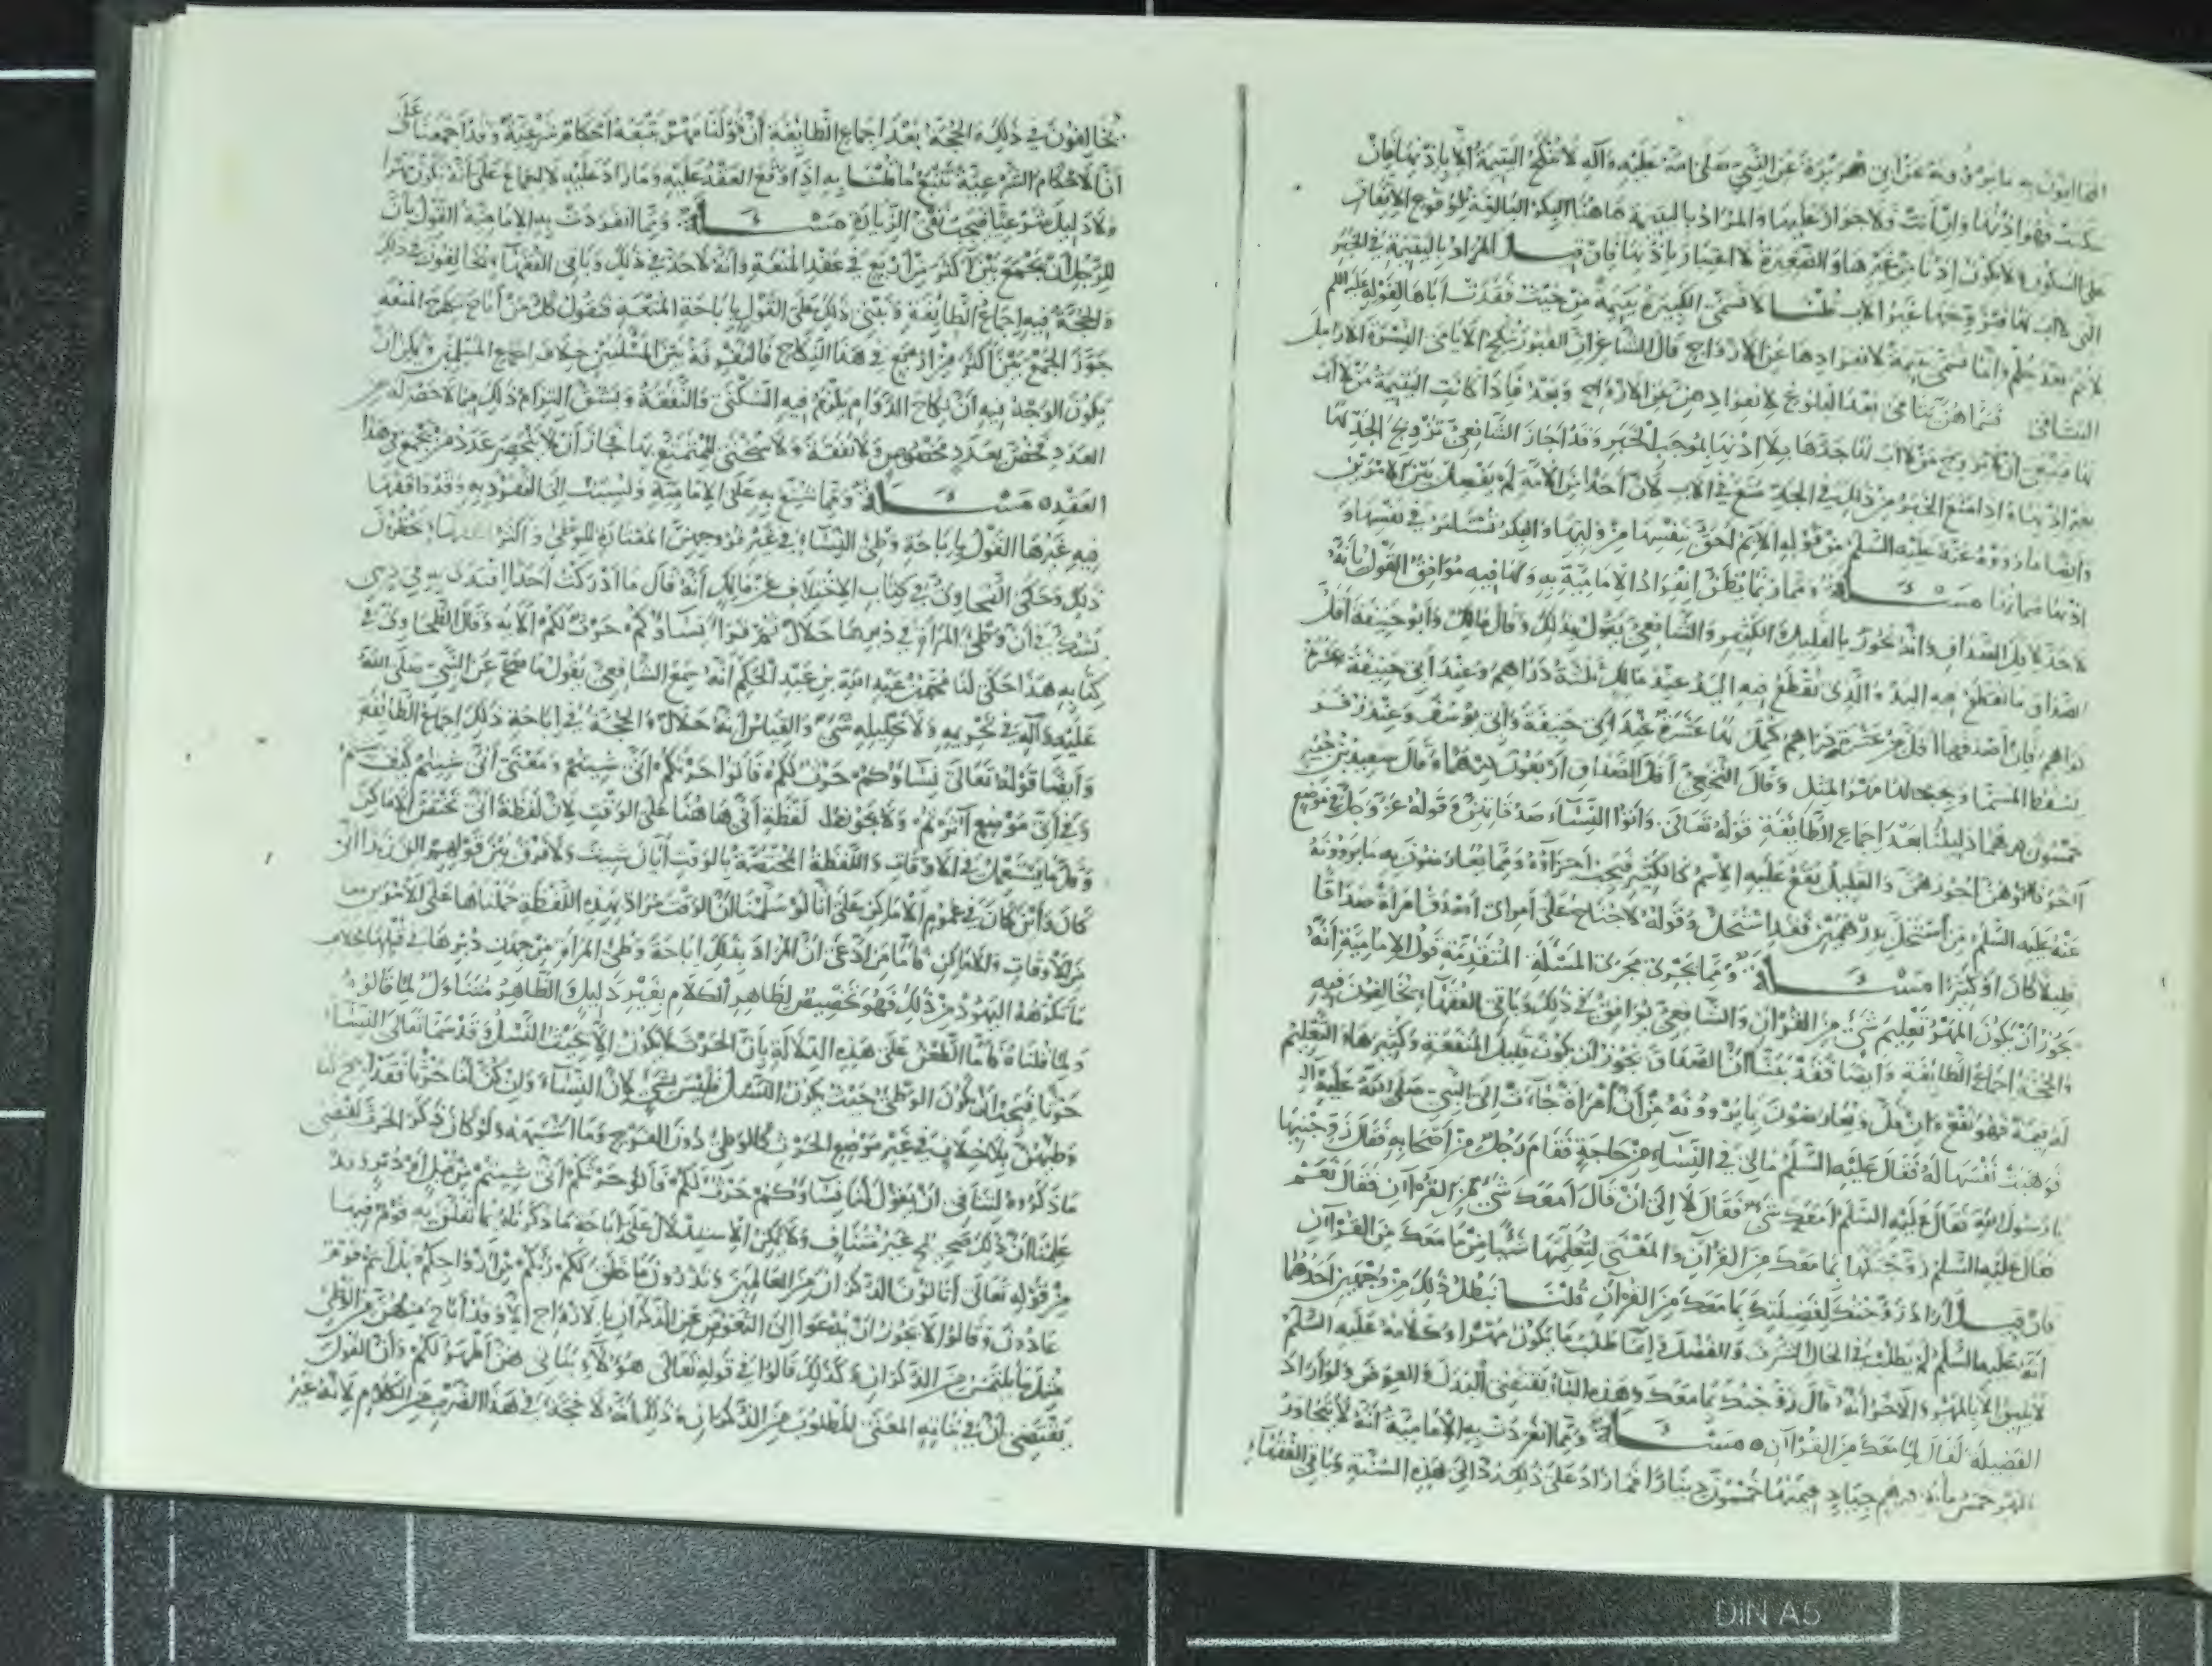 المخالفون به ما يروونه عن أبي هريرة عن النبي صلى الله عليه وآله لا تنكح اليتيمة الا باذنها فان
سكتت فهو اذنها وان أبت فلا جواز عليها والمراد باليتيمة هاهنا البكر البالغة لوقوع الاتفاق
على السكوت لا يكون اذنا من غيرها والصغيرة لا اعتبار باذنها فان قيل المراد باليتيمة في الخبر
التي لا أب لها فتزوجها غير الأب قلنا لا تسمى الكبيرة يتيمة من حيث فقدت أباها لقوله عليه السلم
لا يتم بعد حلم وانما تسمى يتيمة لانفرادها عن الازواج قال الشاعر ان القبور تنكح الأيامى النسوة الارامل
اليتامى فسماهن يتامى بعد البلوغ لانفرادهن عن الازواج وبعد فاذا كانت اليتيمة من لا أب
لها فينبغي أن لا تزويج من لا أب لها جدها بلا اذنها لموجب الخبر وقد أجاز الشافعي تزويج الجد لها
بغير اذنها واذا امتنع الخبر من ذلك في الجد منع في الاب لان أحدا من الامة لم يفصل بين الامرين
وأيضا ما رووه عنه عليه السلم من قوله الأيم أحق بنفسها من وليها والبكر تستأمر في نفسها و
اذنها صماتها مسألة ومما ربما يظن انفراد الامامية به ولها فيه موافق القول بأنه
لا حد لأقل الصداق وانه يجوز بالقليل والكثير والشافعي يقول بذلك وقال مالك وأبو حنيفة أقل
الصداق ما تقطع فيه اليد والذي تقطع فيه اليد عند مالك ثلثة دراهم وعند أبي حنيفة عشرة
دراهم فان أصدقها أقل من عشرة دراهم كمل لها عشرة عند أبي حنيفة وأبي يوسف وعند زفر
يسقط المسمى ويجب لها مهر المثل وقال النخعي أقل الصداق أربعون درهما وقال سعيد بن جبير
خمسون درهما دليلنا بعد إجماع الطائفة قوله تعالى وآتوا النساء صدقاتهن وقوله عز وجل في موضع
آخر فآتوهن أجورهن والقليل يقع عليه الاسم كالكثير فيجب إجزاؤه ومما يعارضون به ما يروونه
عنه عليه السلم من استحل بدرهمين فقد استحل وقوله لا جناح على امرئ أصدق امرأة صداقا
قليلا كان أو كثيرا مسألة ومما يجري مجرى المسئلة المتقدمة قول الإمامية انه
يجوز أن يكون المهر تعليم شيء من القرآن والشافعي يوافق في ذلك وباقي الفقهاء يخالفون فيه
والحجة إجماع الطائفة وأيضا فقد بينا ان الصداق يجوز أن يكون قليل المنفعة وكثيرها والتعليم
له قيمة فهو نفع وان قل ويعارضون بما يروونه من أن امرأة جاءت إلى النبي صلى الله عليه وآله
فوهبت نفسها له فقال عليه السلم مالي في النساء من حاجة فقام رجل من أصحابه فقال زوجنيها
يا رسول الله فقال عليه السلم أمعك شيء فقال لا إلى أن قال أمعك شيء من القرآن فقال نعم
فقال عليه السلم زوجتكها بما معك من القرآن والمعنى لتعلمها شيئا مما معك من القرآن
فان قيل أراد زوجتك لفضيلتك بما معك من القرآن قلنا يبطل ذلك من وجهين أحدهما
أنه عليه السلم لم يطلب في الحال الشرف والفضل وإنما طلب ما يكون مهرا وكلامه عليه السلم
لا يليق الا بالمهر والآخر انه قال زوجتك بما معك وهذه الباء تقتضي البدل والعوض ولو أراد
الفضيلة لقال لما معك من القرآن مسألة ومما انفردت به الإمامية أنه لا يتجاوز
المهر خمسمائة درهم جياد قيمتها خمسون دينارا فما زاد على ذلك رد إلى هذه السنة وباقي الفقهاء
يخالفون في ذلك والحجة بعد إجماع الطائفة أن قولنا مهر يتبعه أحكام شرعية وقد أجمعنا على
أن الأحكام الشرعية تتبع ما قلنا به إذا وقع العقد عليه وما زاد عليه لا إجماع على انه يكون مهرا
ولا دليل شرعيا فيجب نفي الزيادة مسألة ومما انفردت به الامامية القول بأن
للرجل أن يجمع بين أكثر من أربع في عقد المتعة وأنه لا حد في ذلك وباقي الفقهاء يخالفون في ذلك
والحجة فيه إجماع الطائفة ونبني ذلك على القول بإباحة المتعة فنقول كل من أباح نكاح المتعة
جوز الجمع بين أكثر من أربع في هذا النكاح فالتفرقة بين المسلتين خلاف اجماع المسلمين ويمكن أن
يكون الوجه فيه أن نكاح الدوام يلزم فيه السكنى والنفقة ويشق التزام ذلك مما لا حصر له من
العدد فخص بعدد مخصوص ولا نفقة ولا سكنى للمتمتع بها فجاز أن لا ينحصر عدد من يجمع في هذا
العقد مسألة ومما شنع به على الإمامية ونسبت إلى التفرد به وقد وافقها
فيه غيرها القول بإباحة وطئ النساء في غير فروجهن المعتادة للوطئ وأكثر الفقهاء يحظرون
ذلك وحكى الطحاوي في كتاب الاختلاف عن مالك أنه قال ما أدركت أحدا اقتدي به في ديني
يشك في أن وطئ المرأة في دبرها حلال ثم قرأ نساؤكم حرث لكم الآية وقال الطحاوي في
كتابه هذا حكى لنا محمد بن عبد الله بن عبد الحكم أنه سمع الشافعي يقول ما صح عن النبي صلى الله
عليه وآله في تحريمه ولا تحليله شيء والقياس أنه حلال والحجة في إباحة ذلك إجماع الطائفة
وأيضا قوله تعالى نساؤكم حرث لكم فأتوا حرثكم أنى شئتم ومعنى أنى شئتم كيف شئتم
وفي أي موضع آثرتم ولا يجوز حمل لفظة أنى هاهنا على الوقت لأن لفظة أنى تختص الأماكن
وقل ما يستعمل في الأوقات واللفظة المختصة بالوقت أيان شئت ولا فرق بين قولهم الق زيدا أنى
كان وأين كان في عموم الأماكن على أنا لو سلمنا ان الوقت مراد بهذه اللفظة حملناها على الأمرين معا
من الأوقات والأماكن فأما من ادعى أن المراد بذلك اباحة وطئ المرأة من جهة دبرها في قبلها خلاف
ما تكرهه اليهود من ذلك فهو تخصيص لظاهر الكلام بغير دليل والظاهر متناول لما قالوه
ولما قلناه فأما الطعن على هذه الدلالة بأن الحرث لا يكون الا بحيث النسل وقد سمى تعالى النساء
حرثا فيجب أن يكون الوطئ حيث يكون النسل فليس بشيء لان النساء وان كن لنا حرثا فقد أبيح لنا
وطئهن بلا خلاف في غير موضع الحرث كالوطئ دون الفرج وما اشبهه ولو كان ذكر الحرث يقتضي
ما ذكروه لتنافى ان يقول لنا نساؤكم حرث لكم فأتوا حرثكم أنى شئتم من قبل أو دبر وقد
علمنا ان ذلك صحيح غير متناف ولا يمكن الاستدلال على إباحة ما ذكرناه بما تعلق به قوم فيها
من قوله تعالى أتأتون الذكران من العالمين وتذرون ما خلق لكم ربكم من أزواجكم بل أنتم قوم
عادون وقالوا لا يجوز ان يدعوا إلى التعوض عن الذكران بالازواج الا وقد أباح منهن من الوطئ
مثل ما يلتمس من الذكران وكذلك قالوا في قوله تعالى هؤلاء بناتي هن أطهر لكم وأن القول
يقتضي أن في بناته المعنى المطلوب من الذكران وذلك أنه لا حجة في هذا الضرب من الكلام لأنه غير